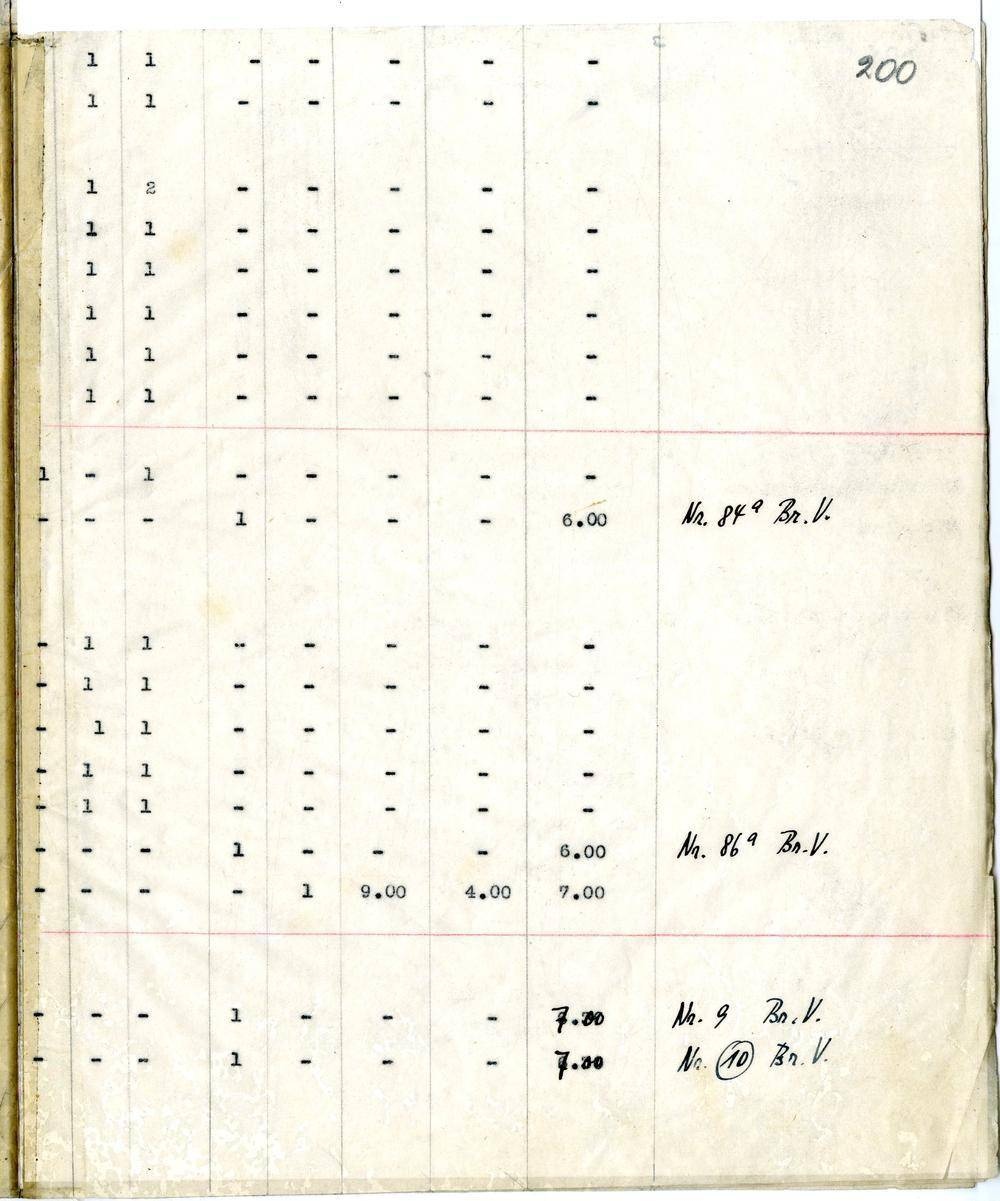 200
1 1 - - - - -
1 1 - - - - -
1 2 - - - - -
1 1 - - - - -
1 1 - - - - -
1 1 - - - - -
1 1 - - - - -
1 1 - - - - -
1 - 1 - - - - -
- - - 1 - - - 6.00 Nr. 84ª Br. V.
- 1 1 - - - - -
- 1 1 - - - - -
- 1 1 - - - - -
- 1 1 - - - - -
- 1 1 - - - - -
- - - 1 - - - 6.00 Nr. 86ª Br. V.
- - - - 1 9.00 4.00 7.00
- - - 1 - - - Nr. 9 Br. V.
- - - 1 - - - Nr. 10 Br. V.